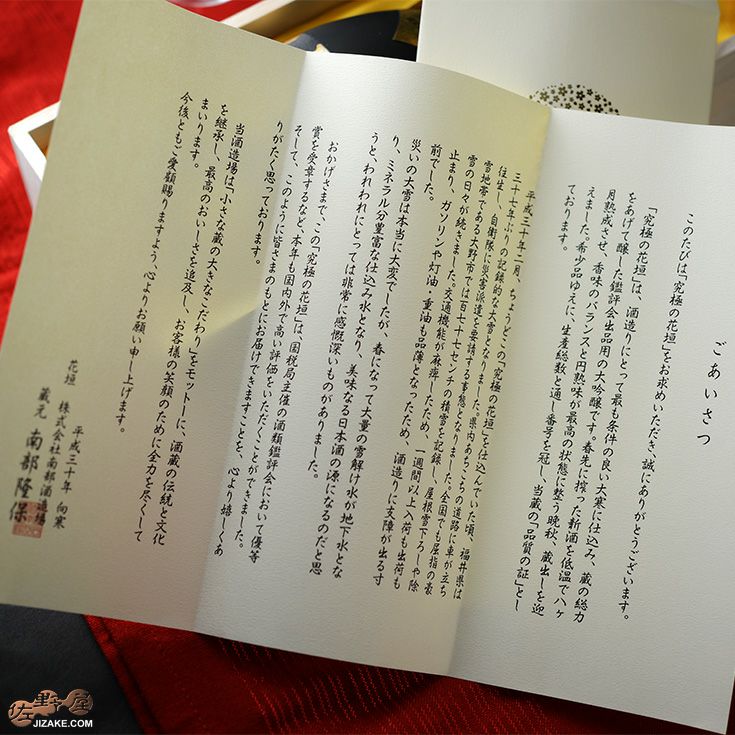 ごあいさつ
このたびは「究極の花垣」をお求めいただき、誠にありがとうございます。
「究極の花垣」は、酒造りにとって最も条件の良い大寒に仕込み、蔵の総力
をあげて醸した鑑評会出品用の大吟醸です。春先に搾った新酒を低温で八ヶ
月熟成させ、香味のバランスと円熟味が最高の状態に整う晩秋、蔵出しを迎
えました。希少品ゆえに、生産総数と通し番号を冠し、当蔵の「品質の証」とし
ております。
平成三十年二月、ちょうどこの「究極の花垣」を仕込んでいた頃、福井県は
三十七年ぶりの記録的な大雪となりました。県内あちこちの道路に車が立ち
往生し、自衛隊に災害派遣を要請する事態となりました。全国でも屈指の豪
雪地帯である大野市では百七十七センチの積雪を記録し、屋根雪下ろしや除
雪の日々が続きました。交通機能が麻痺したため、一週間以上入荷も出荷も
止まり、ガソリンや灯油・重油も品薄となったため、酒造りに支障が出る寸
前でした。
災いの大雪は本当に大変でしたが、春になって大量の雪解け水が地下水とな
り、ミネラル分豊富な仕込み水となり、美味なる日本酒の源になるのだと思
うと、われわれにとっては非常に感慨深いものがありました。
おかげさまで、この「究極の花垣」は、国税局主催の酒類鑑評会において優等
賞を受章するなど、本年も国内外で高い評価をいただくことができました。
そして、このように皆さまのもとにお届けできますことを、心より嬉しくあ
りがたく思っております。
当酒造場は「小さな蔵の大きなこだわり」をモットーに、酒蔵の伝統と文化
を継承し、最高のおいしさを追及し、お客様の笑顔のために全力を尽くして
まいります。
今後ともご愛顧賜りますよう、心よりお願い申し上げます。
平成三十年 向寒
花垣 株式会社南部酒造場
蔵元 南部隆保
佐野屋
JIZAKE.COM